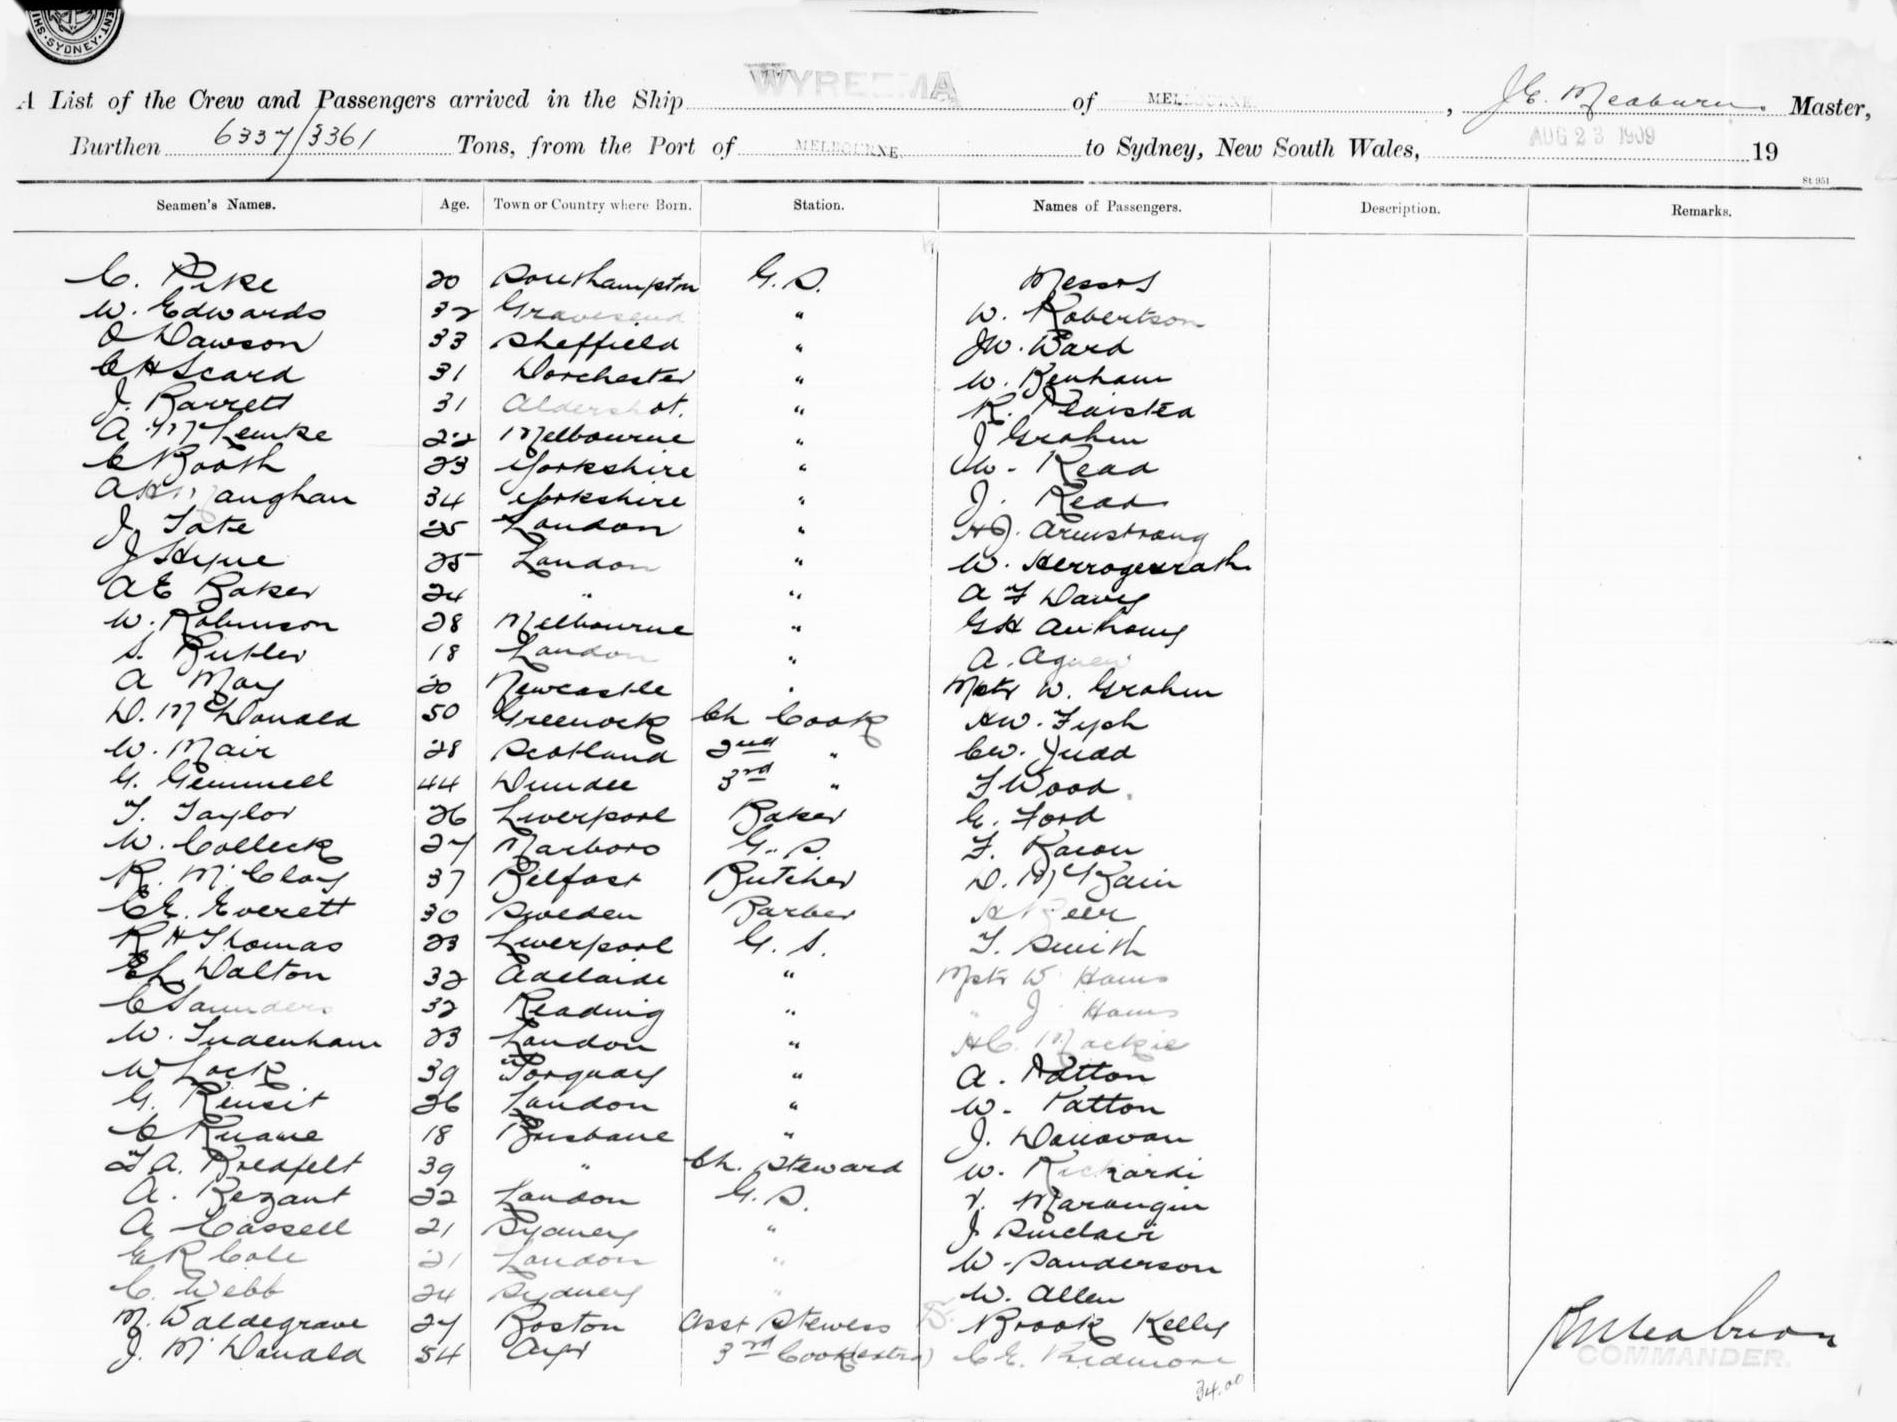 SYDNEY
A List of the Crew and Passengers arrived in the Ship WYREEMA of MELBOURNE, J.E. Meaburn Master,
Burthen 6337/3361 Tons, from the Port of MELBOURNE to Sydney, New South Wales, AUG 23 1909 19
St 951
Seamen's Names. Age. Town or Country where Born. Station. Names of Passengers. Description. Remarks.
C. Pike 20 Southampton G.S. Messrs
W. Edwards 32 Gravesend " W. Robertson
O Dawson 33 Sheffield " JW. Ward
C H Scard 31 Dorchester " W. Benham
J. Barrett 31 Aldershot. " R. Plaisted
A. McLemke 22 Melbourne " J Grahm
C Booth 23 Yorkshire " W. Read
A H Maughan 34 Yorkshire " J. Read
J. Tate 25 London " HJ. Armstrong
J Hyne 25 London " W. Herrogenrath
AE Baker 24 " " A F Davy
W. Robinson 28 Melbourne " GH Anthony
S. Butler 18 London " A. Agnew
A May 20 Newcastle " Mstr W. Grahm
D. McDonald 50 Greenock Ch Cook HW. Fysh
W. Mair 28 Scotland 2nd " CW. Judd
G. Gemmell 44 Dundee 3rd " F Wood.
T. Taylor 26 Liverpool Baker C. Ford
W. Colleck 27 Marboro G.S. F. Bacon
R. McCloy 37 Belfast Butcher D. McBain
CE. Everett 30 Sweden Barber H Beer
R H Thomas 23 Liverpool G.S. T. Smith
EL Dalton 32 Adelaide " Mstr W Hams
C Saunders 32 Reading " " J Hams
W. Tudenham 23 London " HC. Mackie
W Lock 39 Torquay " A. Patton
G. Rensit 36 London " W. Patton
C Ruane 18 Brisbane " J. Donovan
F A. Bredfelt 39 " Ch. Steward W. Rickardi
A. Bezant 22 London G.S. V. Marangin
A Cassell 21 Sydney " J Sinclair
ER Cole 21 London " W. Sanderson
C. Webb 24 Sydney " W. Allen
M. Waldegrave 27 Boston Asst Stewess Dr Brook Kelly
J. McDonald 54 Ayr 3rd Cook (extra) CE. Redmore
34.00
JEMeaburn
COMMANDER.